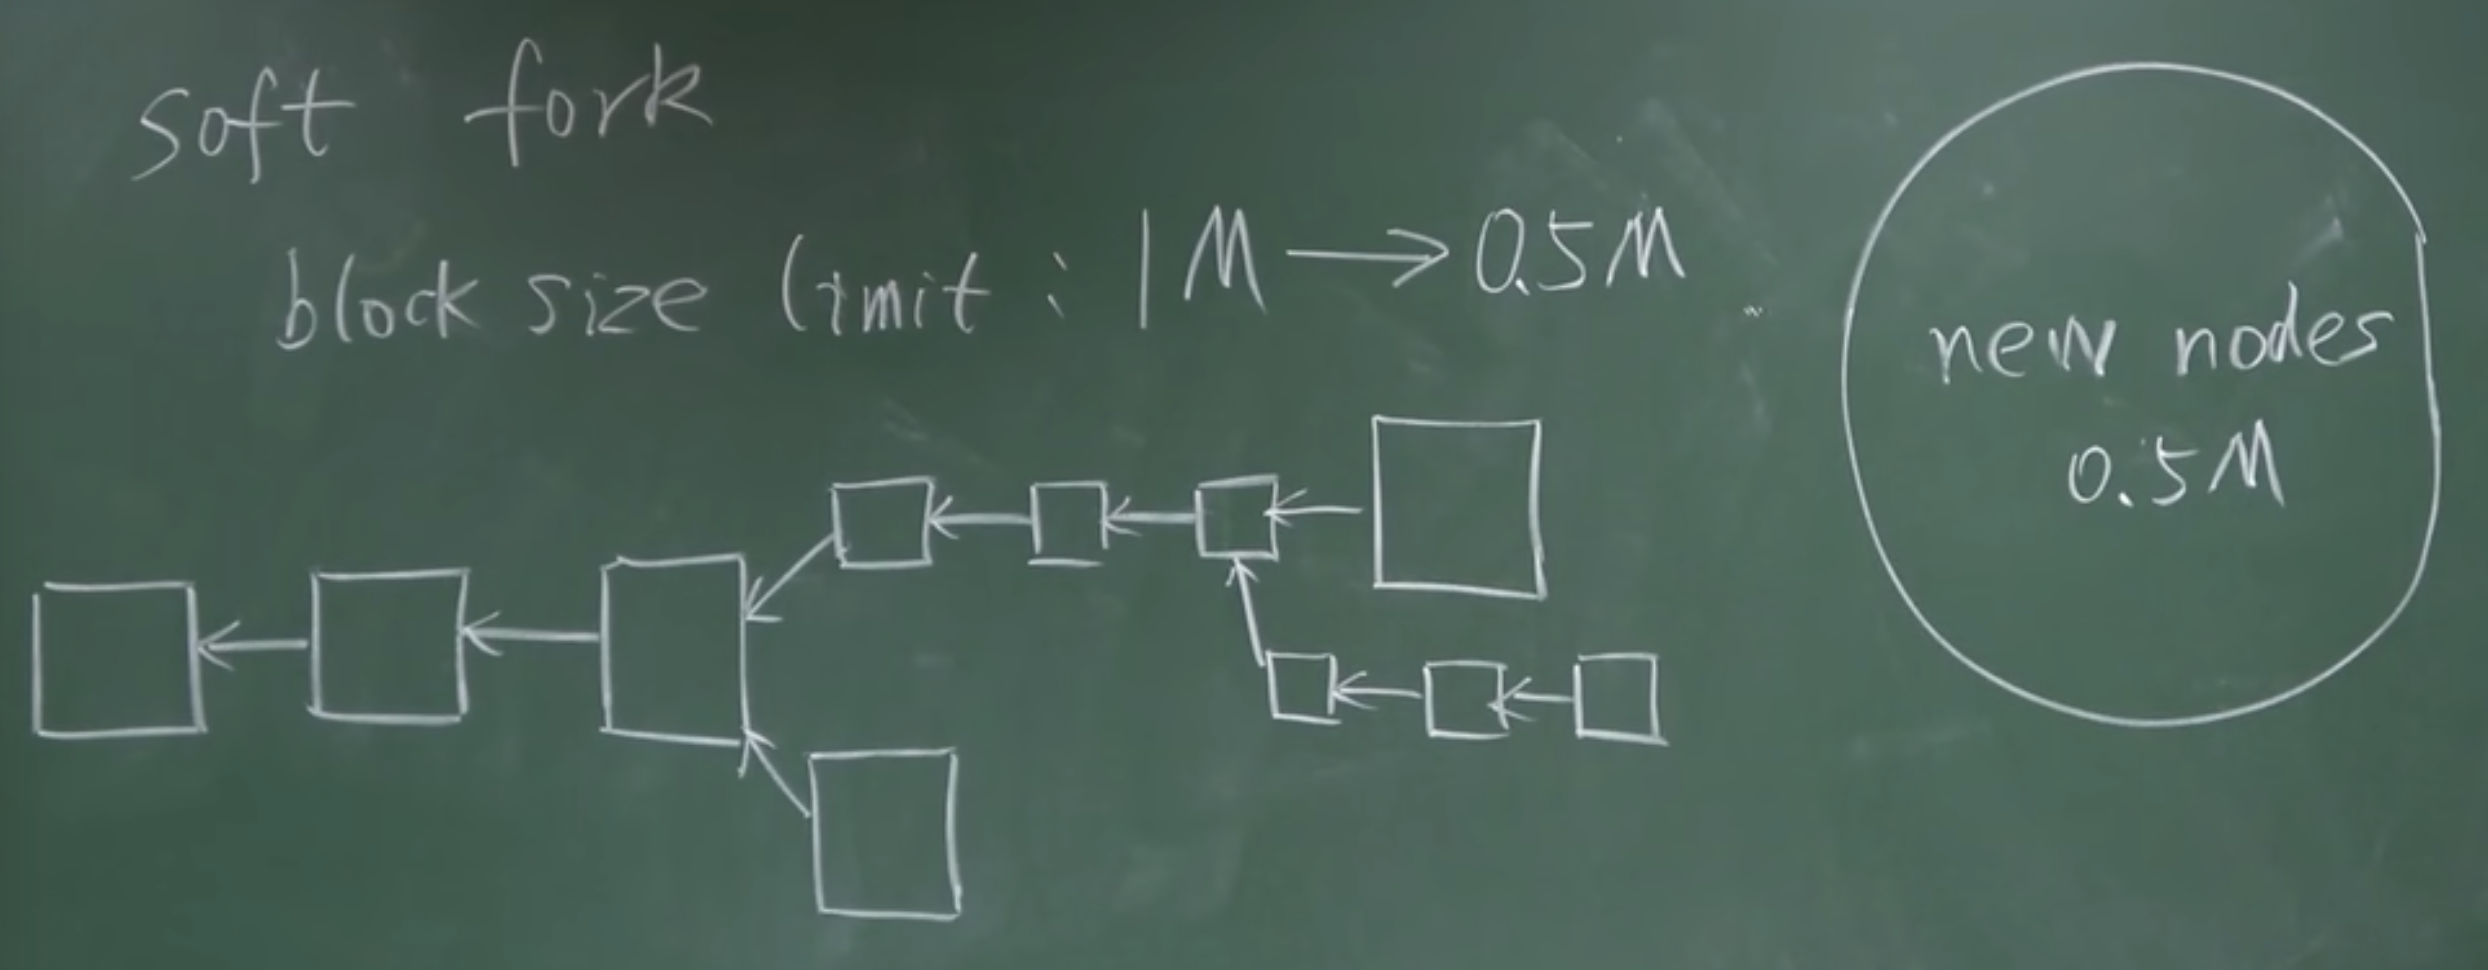 soft fork
block size limit : 1M → 0.5M
new nodes
0.5M